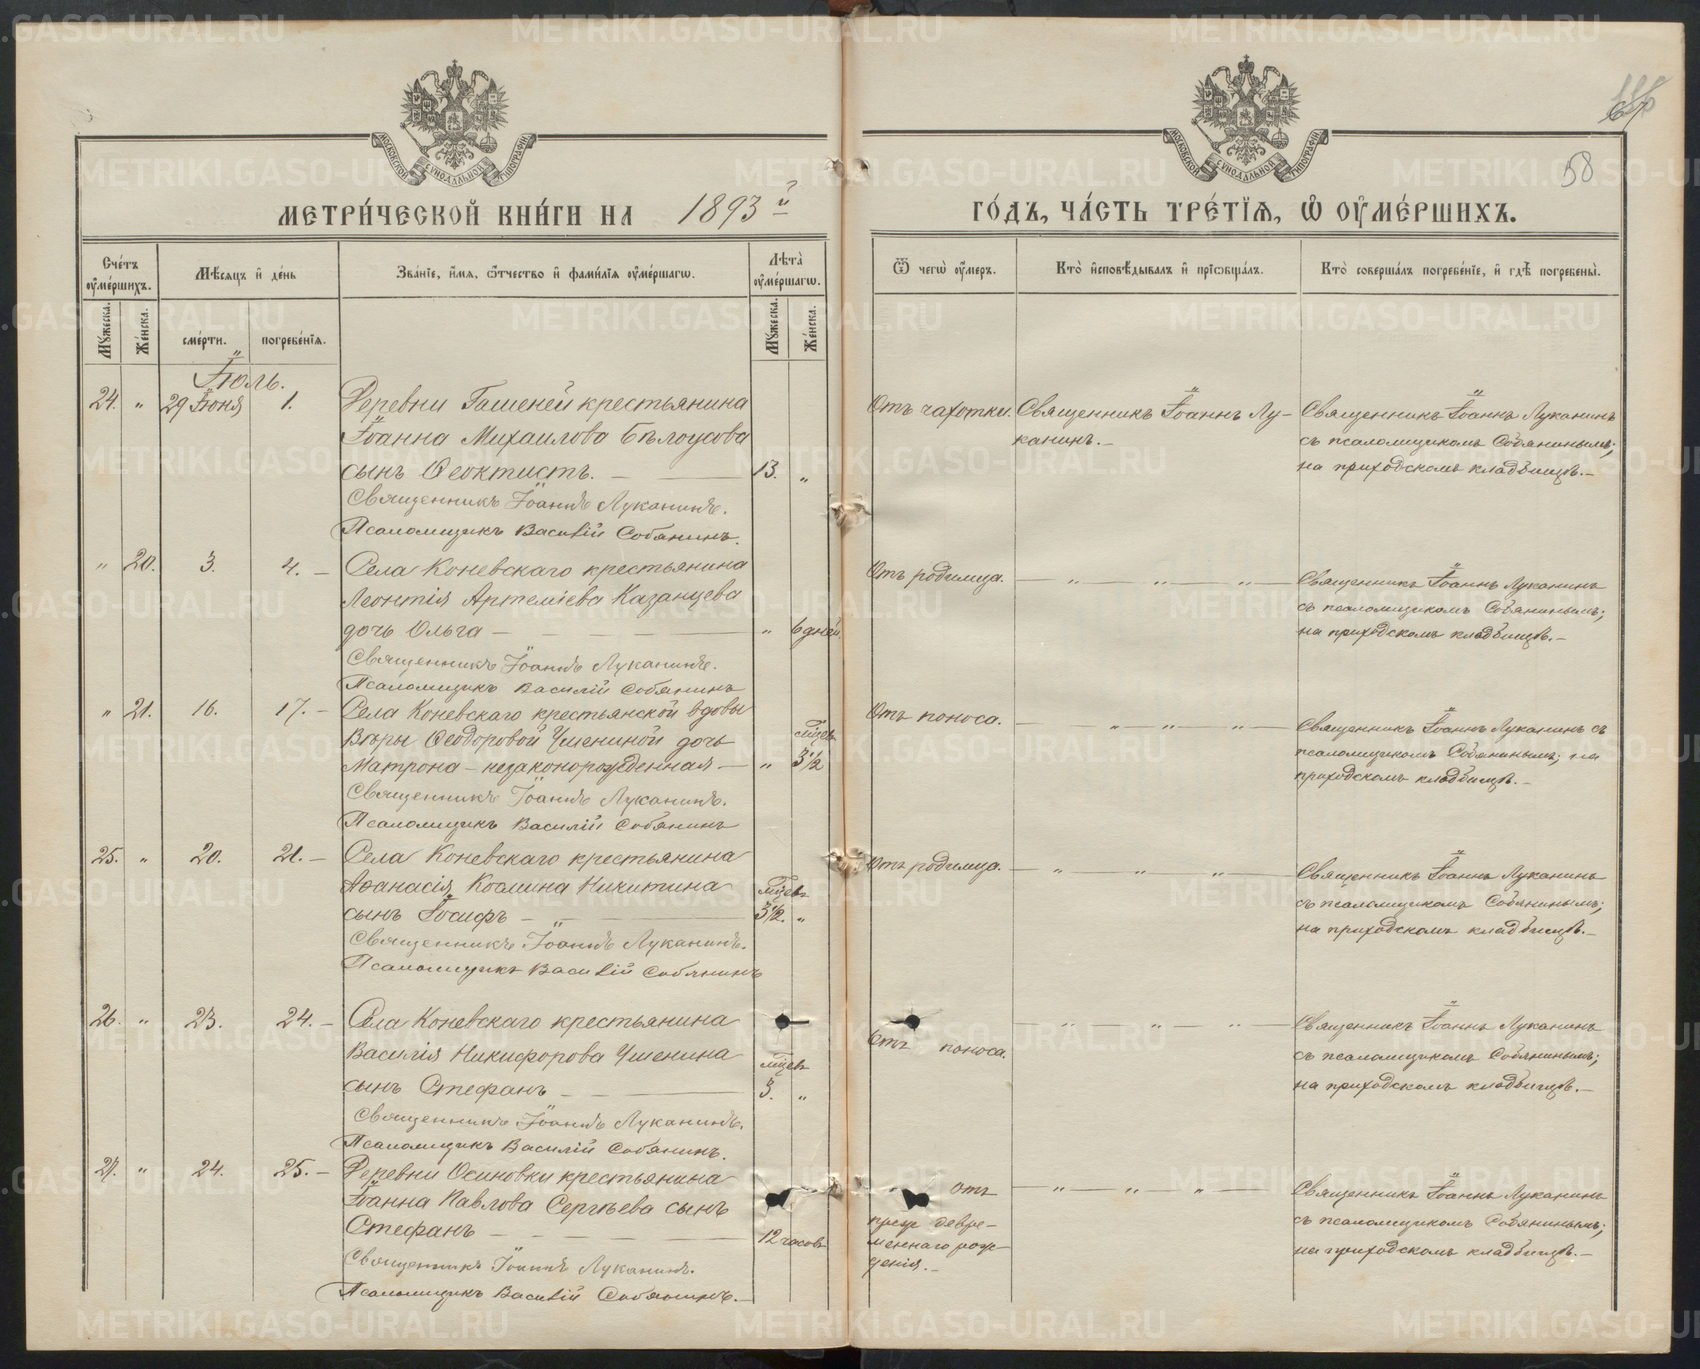 МЕТРИ́ЧЕСКОЙ КНИ́ГИ НА 1893й
ГО́ДЪ, ЧА́СТЬ ТРЕ́ТІѦ, Ѡ ОУМЕ́РШИХЪ.
МОСКОВСКОЙ СѴНОДАЛЬНОЙ ТИПОГРАФІИ
МОСКОВСКОЙ СѴНОДАЛЬНОЙ ТИПОГРАФІИ
58
Сче́тъ оуме́ршихъ.
Мѣсѧцъ и де́нь
Зва́нїе, и́мѧ, ѻ҆́тчество и фами́лїѧ оуме́ршагѡ.
Лѣта̀ оуме́ршагѡ.
Ѿ чегѡ̀ оу́меръ.
Кто̀ и҆сповѣ́дывалъ и҆ прїѡбща́лъ.
Кто̀ соверша́лъ погребе́нїе, и҆ гдѣ̀ погребены̀.
Мꙋжеска.
Же́нска.
сме́рти.
погребе́нїѧ.
Мꙋжеска.
Же́нска.
Іюль.
24. " 29 Іюня 1. Деревни Гашеней крестьянина
Іоанна Михаилова Бѣлоусова
сынъ Ѳеоктистъ. — 13. "
Священникъ Іоаннъ Луканинъ.
Псаломщикъ Василій Собянинъ.
Отъ чахотки. Священникъ Іоаннъ Лу-
канинъ.—
Священникъ Іоаннъ Луканинъ
съ псаломщикомъ Собянинымъ;
на приходскомъ кладбищѣ.—
" 20. 3. 4. — Села Коневскаго крестьянина
Леонтія Артеміева Казанцева
дочь Ольга — " 6 дней
Священникъ Іоаннъ Луканинъ.
Псаломщикъ Василій Собянинъ
Отъ родимца. — " — " — " —
Священникъ Іоаннъ Луканинъ
съ псаломщикомъ Собянинымъ;
на приходскомъ кладбищѣ.—
" 21. 16. 17. — Села Коневскаго крестьянской вдовы
Вѣры Ѳеодоровой Ушениной дочь
Матрона — незаконорожденная — " мѣсяц. 3½
Священникъ Іоаннъ Луканинъ.
Псаломщикъ Василій Собянинъ
Отъ поноса. — " — " — " —
Священникъ Іоаннъ Луканинъ съ
псаломщикомъ Собянинымъ; на
приходскомъ кладбищѣ.—
25. " 20. 21. — Села Коневскаго крестьянина
Аѳанасія Космина Никитина
сынъ Іосифъ — мѣсяц. 3½. "
Священникъ Іоаннъ Луканинъ.
Псаломщикъ Василій Собянинъ
Отъ родимца. — " — " — " —
Священникъ Іоаннъ Луканинъ
съ псаломщикомъ Собянинымъ;
на приходскомъ кладбищѣ.—
26. " 23. 24. — Села Коневскаго крестьянина
Василія Никифорова Ушенина
сынъ Стефанъ — мѣсяц. 3. "
Священникъ Іоаннъ Луканинъ.
Псаломщикъ Василій Собянинъ.
Отъ поноса. — " — " — " —
Священникъ Іоаннъ Луканинъ
съ псаломщикомъ Собянинымъ;
на приходскомъ кладбищѣ.—
27. " 24. 25. — Деревни Осиновки крестьянина
Іоанна Павлова Сергѣева сынъ
Стефанъ — 12 часовъ
Священникъ Іоаннъ Луканинъ.
Псаломщикъ Василій Собянинъ.—
отъ
преждевре-
меннаго рож-
денія.—
— " — " — " —
Священникъ Іоаннъ Луканинъ
съ псаломщикомъ Собянинымъ;
на приходскомъ кладбищѣ.—
METRIKI.GASO-URAL.RU